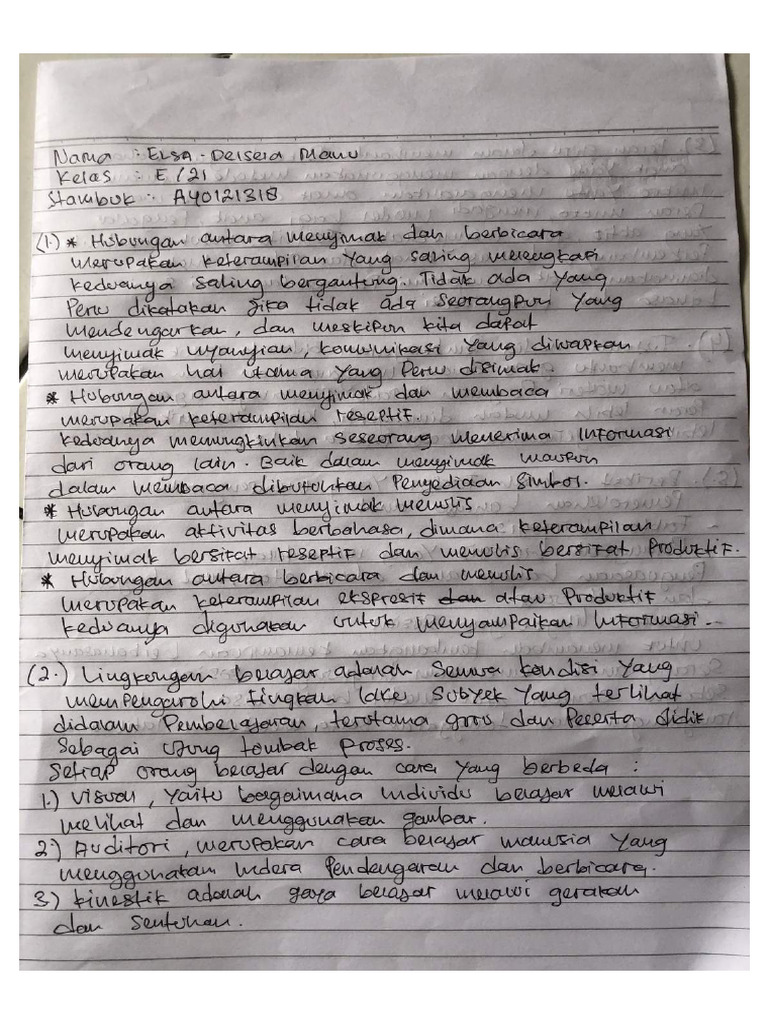 Nama : ELSA. Deisera Manu
Kelas : E / 21
Stambuk : A40121318
(1.) * Hubungan antara menyimak dan berbicara
merupakan keterampilan yang saling melengkapi
keduanya saling bergantung. Tidak ada yang
Perlu dikatakan jika tidak ada seorangpun yang
mendengarkan, dan meskipun kita dapat
menyimak nyanyian, komunikasi yang diucapkan
merupakan hal utama yang Perlu disimak.
* Hubungan antara menyimak dan membaca
merupakan keterampilan reseptif.
keduanya memungkinkan seseorang menerima informasi
dari orang lain. Baik dalam menyimak maupun
dalam membaca dibutuhkan Penyediaan Simbol.
* Hubungan antara menyimak menulis
merupakan aktivitas berbahasa, dimana keterampilan
menyimak bersifat reseptif dan menulis bersifat Produktif.
* Hubungan antara berbicara dan menulis
merupakan keterampilan ekspresif dan atau Produktif
keduanya digunakan untuk menyampaikan Informasi.
(2.) Lingkungan belajar adalah Semua kondisi yang
mempengaruhi tingkah laku Subyek yang terlibat
didalam Pembelajaran, terutama guru dan Peserta didik
Sebagai ujung tombak Proses.
Setiap orang belajar dengan cara yang berbeda :
1.) Visual, yaitu bagaimana individu belajar melalui
melihat dan menggunakan gambar.
2.) Auditori, merupakan cara belajar manusia yang
menggunakan indera Pendengaran dan berbicara.
3.) Kinestik adalah gaya belajar melalui gerakan
dan Sentuhan.